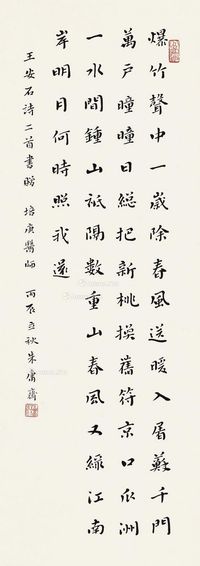 爆竹聲中一歲除春風送暖入屠蘇千門
萬戶曈曈日總把新桃換舊符京口瓜洲
一水間鍾山祇隔數重山春風又綠江南
岸明月何時照我還
王安石詩二首書贈 培庚醫師 丙辰立秋朱庸齋